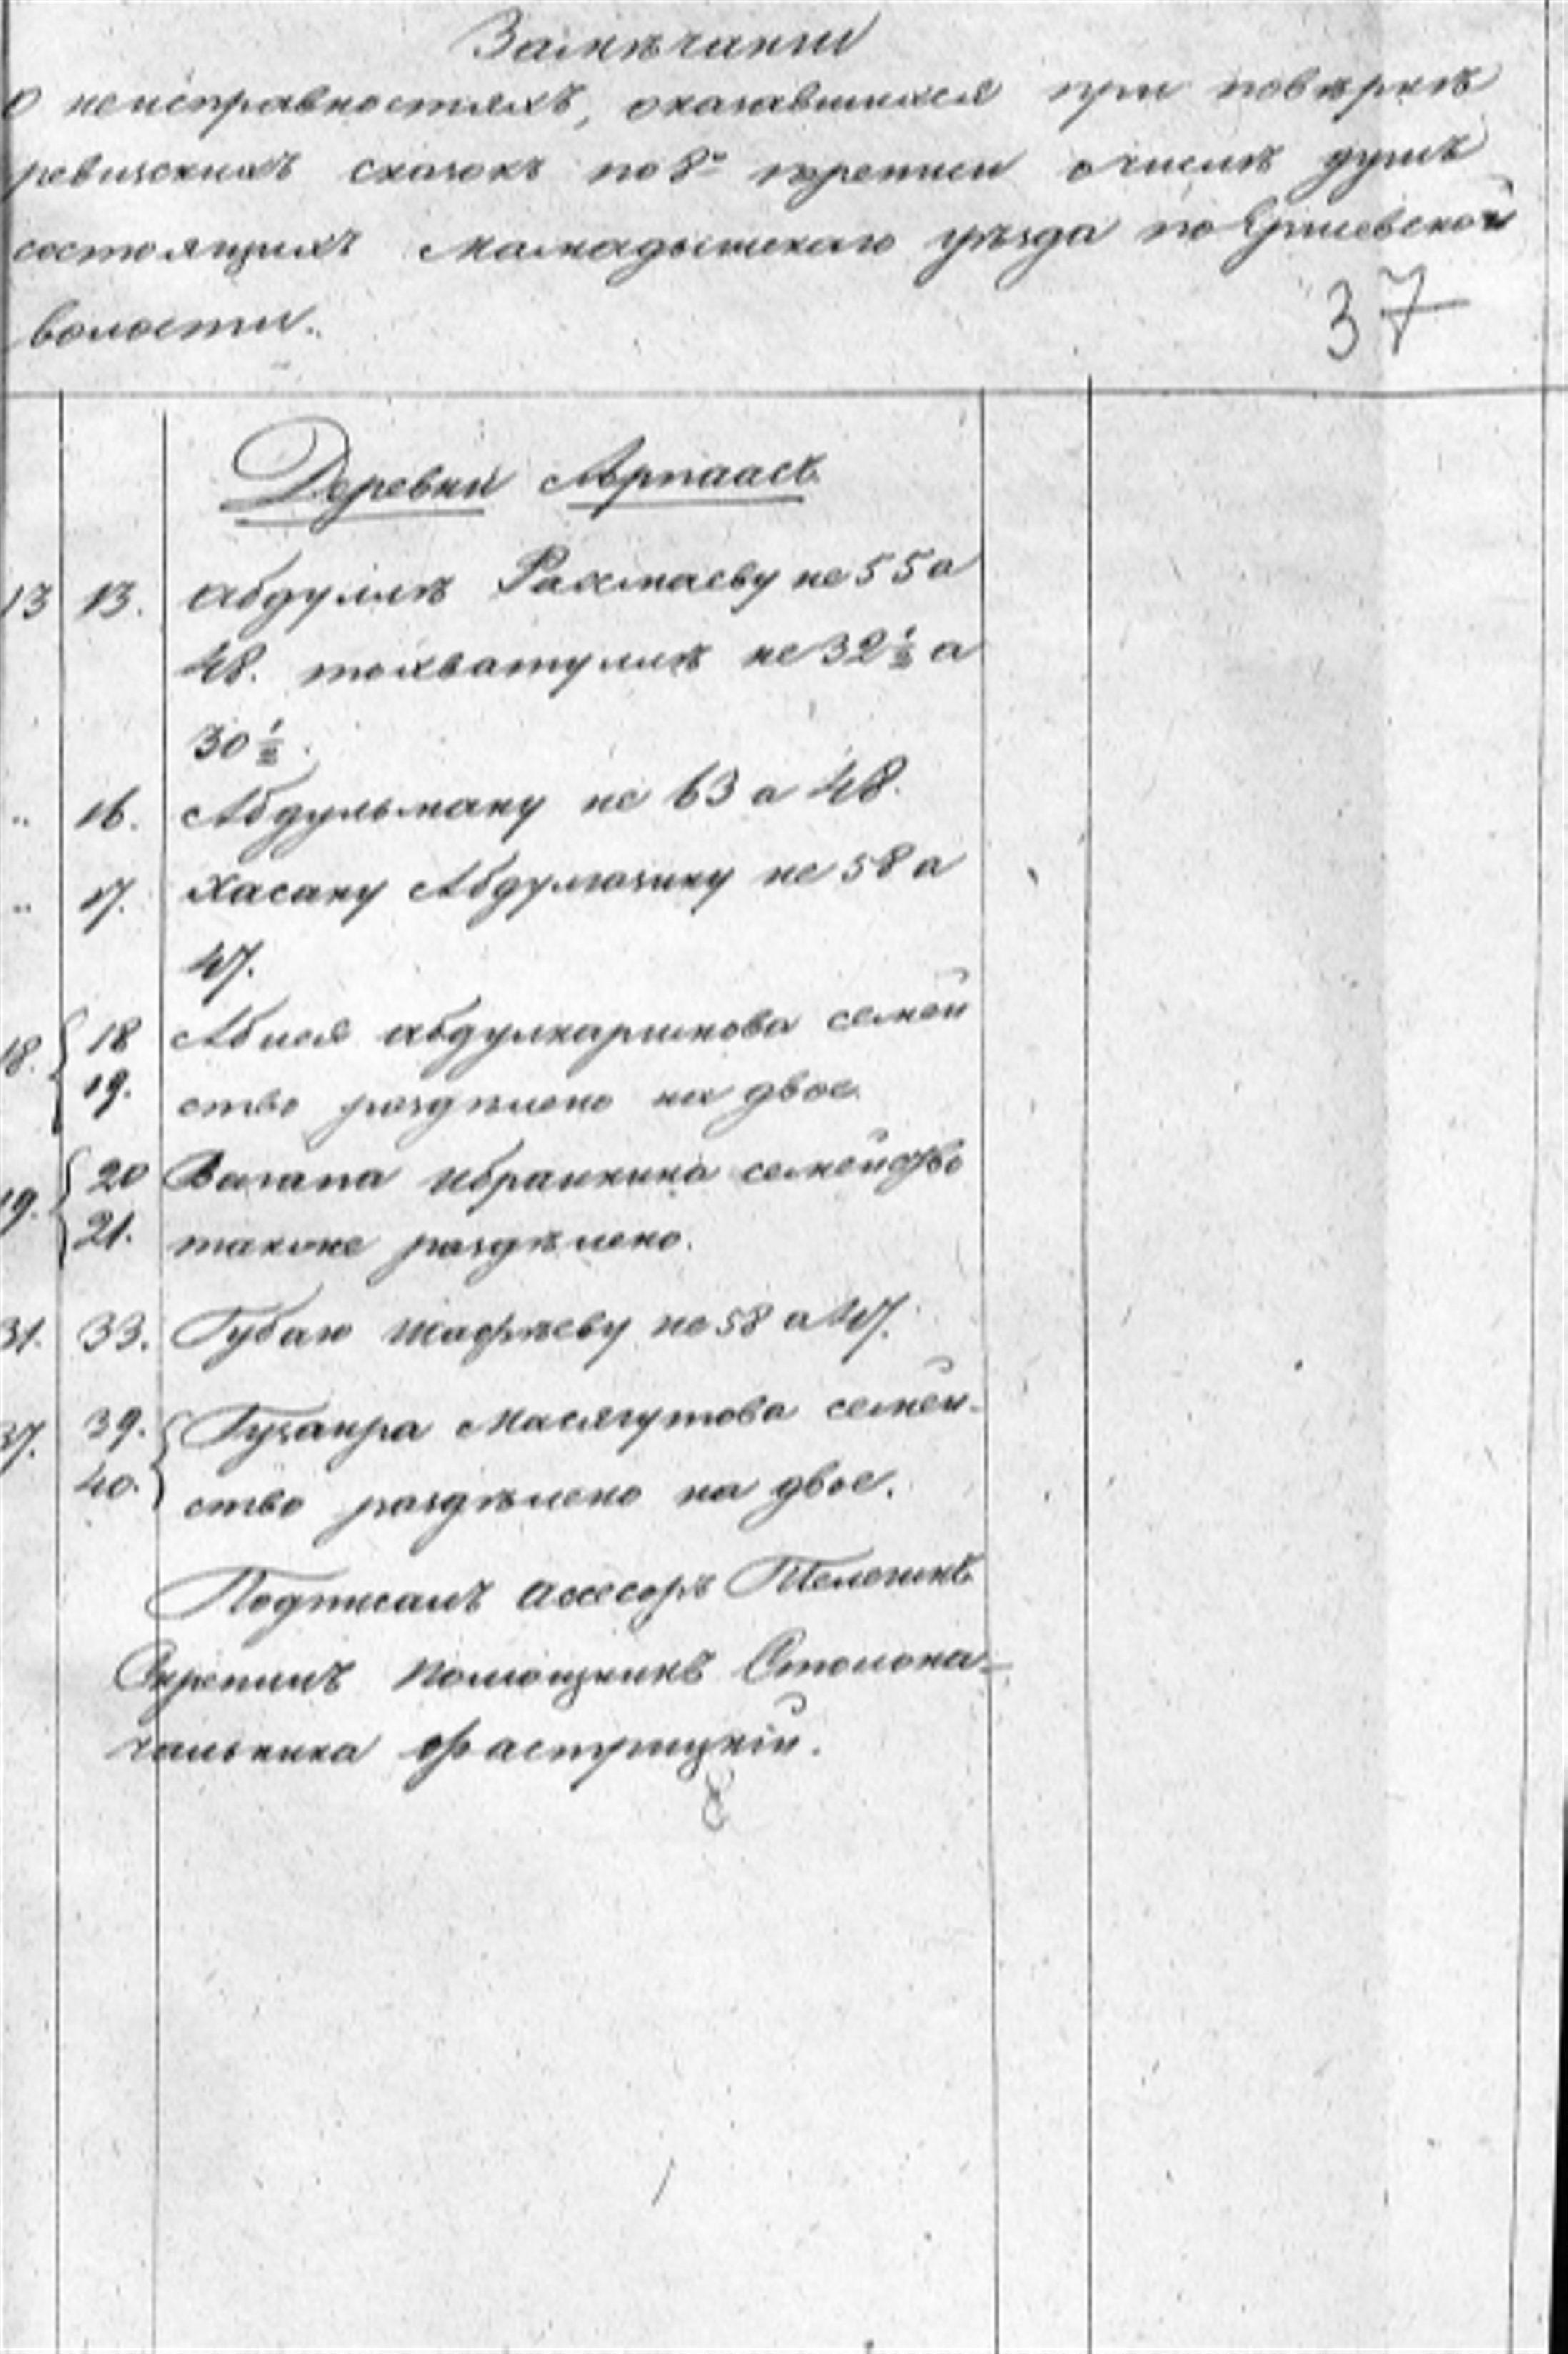 Замѣчанiи
о неисправностяхъ, оказавшихся при повѣркѣ
ревизскихъ сказокъ по 8й переписи о числѣ душъ
состоящихъ Мамадышскаго уѣзда по
волости.
37
Деревни Арпаасъ
13 13. Абдуллѣ Рахмаеву не 55 а
48. тохватуллѣ не 32½ а
30½.
" 16. Абдульману не 63 а 48.
" 17. Хасану Абдулгазину не 58 а
47.
18. 18 Абдулкаримова семей
19. ство раздѣлено на двое.
19. 20 Вагапа Ибрагимова семейство
21. также раздѣлено.
31. 33. Губаю Шафѣеву не 58 а 47.
37. 39. Гузаира Масягутова семей-
40. ство раздѣлено на двое.
Подписалъ Ассесоръ
Скрепилъ Помощникъ Столона-
чальника Фастрицкій.